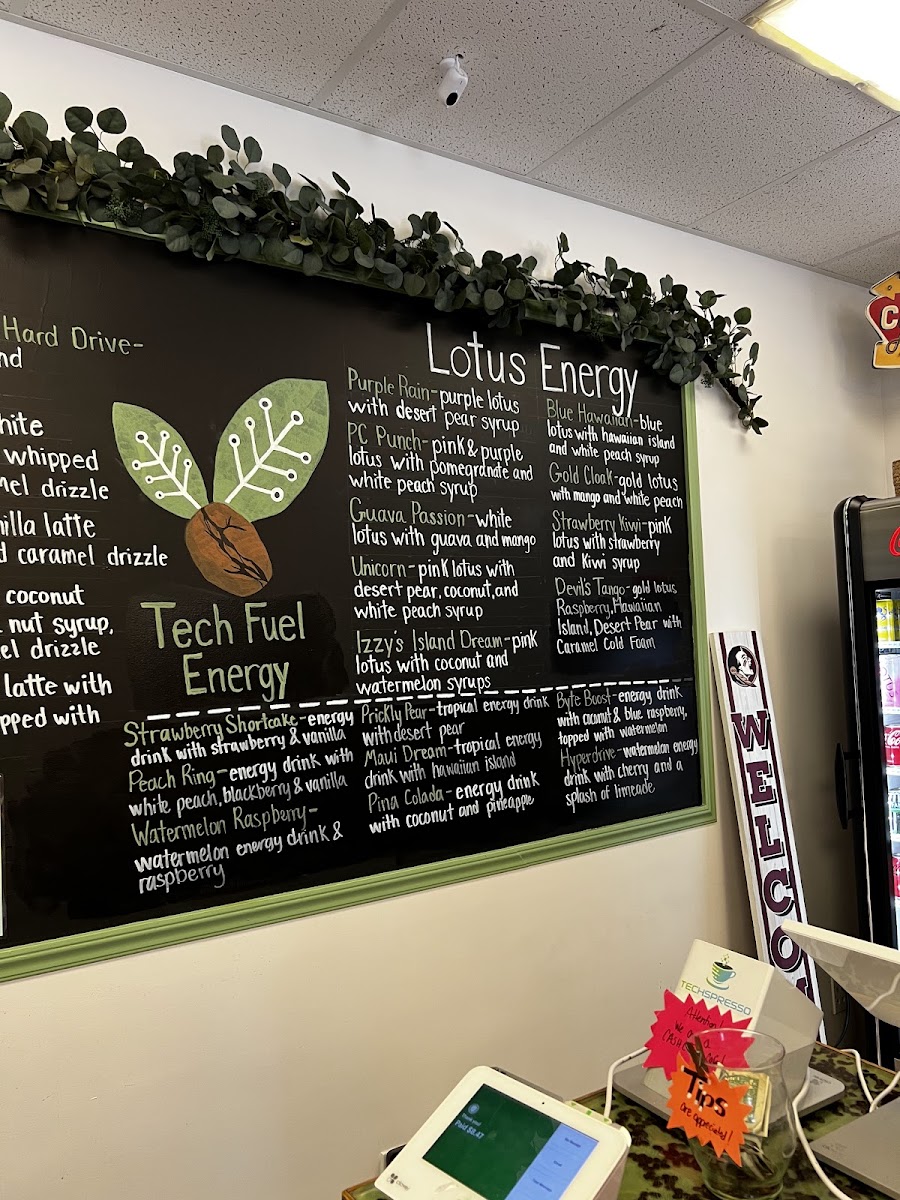 Hard Drive-
nd
hite
whipped
mel drizzle
nilla latte
d caramel drizzle
coconut
nut syrup,
el drizzle
latte with
pped with
Tech Fuel
Energy
Lotus Energy
Purple Rain-purple lotus
with desert pear syrup
PC Punch-pink & purple
lotus with pomegranate and
white peach syrup
Guava Passion-white
lotus with guava and mango
Unicorn-pink lotus with
desert pear, coconut, and
white peach syrup
Izzy's Island Dream-pink
lotus with coconut and
watermelon syrups
Blue Hawaiian-blue
lotus with hawaiian island
and white peach syrup
Gold Cloak-gold lotus
with mango and white peach
Strawberry Kiwi-pink
lotus with strawberry
and Kiwi syrup
Devils Tango-gold lotus,
Raspberry, Hawaiian
Island, Desert Pear with
Caramel Cold Foam
Strawberry Shortcake-energy
drink with strawberry & vanilla
Peach Ring-energy drink with
white peach, blackberry & vanilla
Watermelon Raspberry-
watermelon energy drink &
raspberry
Prickly Pear-tropical energy drink
with desert pear
Maui Dream-tropical energy
drink with hawaiian island
Pina Colada-energy drink
with coconut and pineapple
Byte Boost-energy drink
with coconut & blue raspberry,
topped with watermelon
Hyperdrive-watermelon energy
drink with cherry and a
splash of limeade
WELCO
TECHSPRESSO
Attention!
We are a
Tips
are appreciated!
Thank you!
Paid $8.47